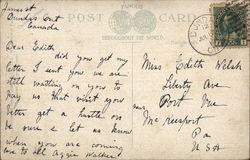 James st
Dundas Ont
Canada
FAMOUS
POST CARD
THROUGHOUT THE WORLD
Dear Edith
did you get my
letter I sent you we are
still waiting on you to
pay us that visit you
better get a hustle on
be sure & let us know
when you are coming
love to all Aggie Walker
Miss Edith Welsh
Liberty Ave
Port Vue
near Mc Keesport
Pa
U S A